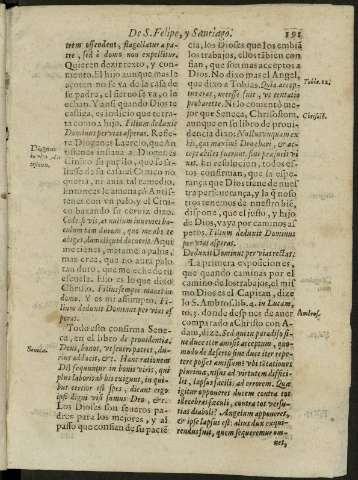 De S. Felipe, y Santiago. 191
trem offendent, flagellatur a patre, sed à domo non expellitur.
Quieren dezir texto, y
mento. El hijo aunque mas le
açoten no se va de la casa de su
padre, el siervo se va, o le
echan. Y ansi quando Dios te
castiga, es indicio que te
ta como a hijo. Filium deduxit
Dominus per vias asperas. Refie-
re Diogenes Laercio, que
enseñava a Diogenes
Cinico su pupilo, que
liesse de su casa: el Cinico no
queria, ni avia tal remedio,
entonces levantava
tenes con un palo, y el Cini-
co baxando su cerviz dizo:
Cæde si vis, at nullum invenies ba-
culum tam durum, quo me abs te
abigas, dum aliquid docueris. Aqui
me tienes, matame a palos,
mas cree, que no avra palo
tan duro, que me eche de tu
escuela. Esso es lo que dixo
Christo. Filius semper manet in
domo. Y es mi assumpto. Filium
deduxit Dominus per vias as-
peras.
Todo esto confirma Sene-
ca, en el libro de providentia.
Deus, bonos, ut severi patres, du-
rius adducit, &c. Hanc rationem
Dii sequuntur in bonis viris, qui
plus laboris ab his exigunt, in qui-
bus certior est spes, dicunt ergo
ipsi digni visi sumus Deo, &c.
Los Dioses son severos pa-
dres para los mejores, y al
passo que confian de su pacië
Diogenes
Seneca.
cia, los Dioses que los embiã
los trabajos, ellos tãbien con-
fian, que son mas acceptos a
Dios. No dixo mas el Angel,
que dixo a Tobias. Quia accep-
tus eras, necesse fuit, ut tentatio
probaret te. Ni lo comentò me-
jor que Seneca, Chrisostomo,
aunque en su libro de provi-
dencia dixo:
his, qui maxime Deo chari, & ac-
cepti
nt. En resolucion, todos es-
tos confirman, que la espe-
rança que Dios tiene de nues-
tra perseverança, y la q noso-
tros tenemos de nuestro biẽ,
dispone, que el justo, y hijo
de Dios, vaya por caminos as-
peros. Filium deduxit Dominus
per vias asperas.
Deduxit Dominus per vias rectas:
La primera exposicion es,
que quando caminas por el
camino de los trabajos, el mis
mo Dios es el Capitan, dize
lo S. Ambros. lib. 4. in Lucam,
donde despues de aver
comparado a Christo con A-
dam, dize. Sed quare paradiso si-
ne duce iter amisit acceptum, quo-
modo de deserto sine duce iter repe-
tere posset amissum? ubi tentationes
plurimæ, nisus ad virtutem diffici-
lis, lapsus facilis ad errorem. Quis
igitur opponeret ducem contra tot
illecebras sæculi, contra tot versu-
tias diaboli? Angelum apponeret,
& ipse lapsus est: alius dux exqui-
rendus fuit, quem sequeremur om-
nes,
Tobiæ. 12.
Chrisost.
Ambros.